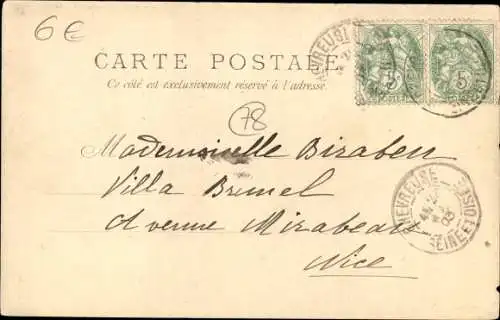 6€
CARTE POSTALE
Ce côté est exclusivement réservé à l'adresse.
78
Mademoiselle Biraben
Villa Bremel
Avenue Mirabeau
Nice
5
5
CHEVREUSE
SEINE ET OISE
03